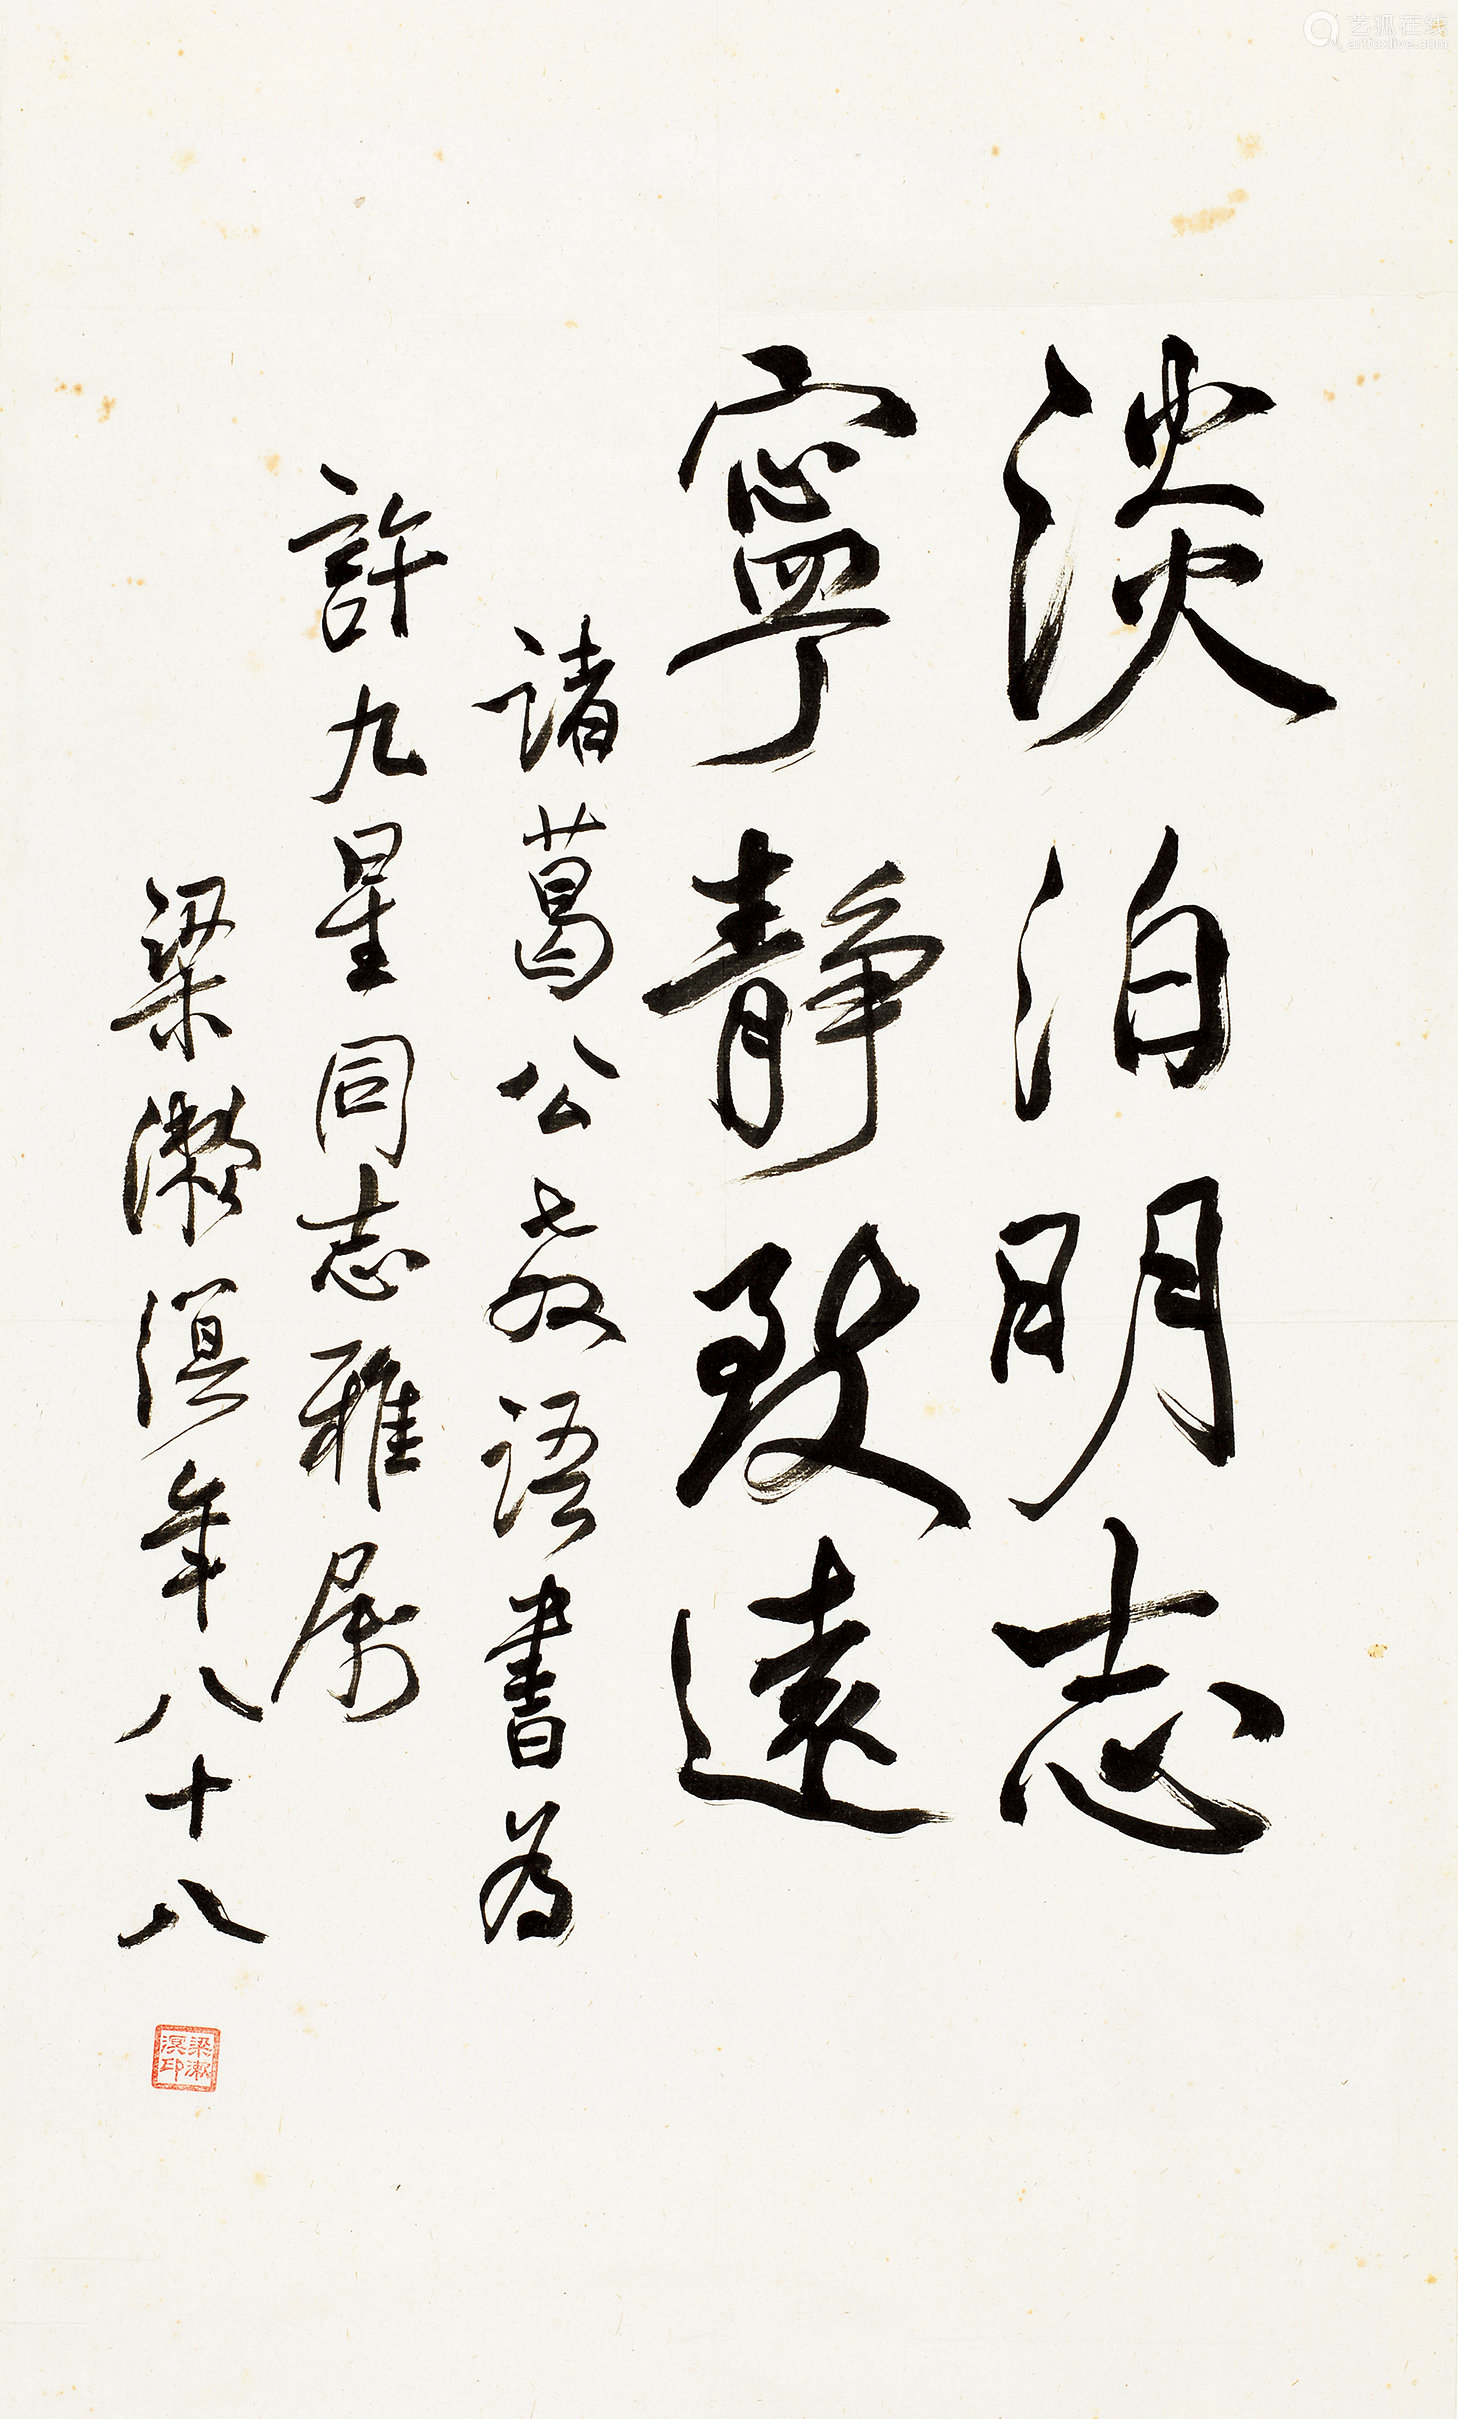 淡泊明志
寧靜致遠
諸葛公教語書為
許九星同志雅屬
梁漱溟年八十八
梁漱溟印
艺狐在线
artfoxlive.com